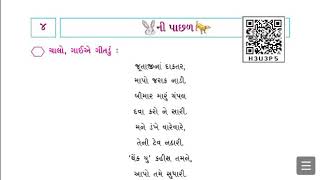 ૪
ની પાછળ
H3U3P5
ચાલો, ગાઈએ ગીતડું :
જૂતાજીનાં દાકતર,
માપો જરાક નાડી.
બીમાર મારું ચંપલ
દવા કરો ને સારી.
મને ડંખે વારેવારે,
તેની ટેવ નઠારી.
'થેંક યુ' કહીસ તમને,
આપો તમે સુધારી.